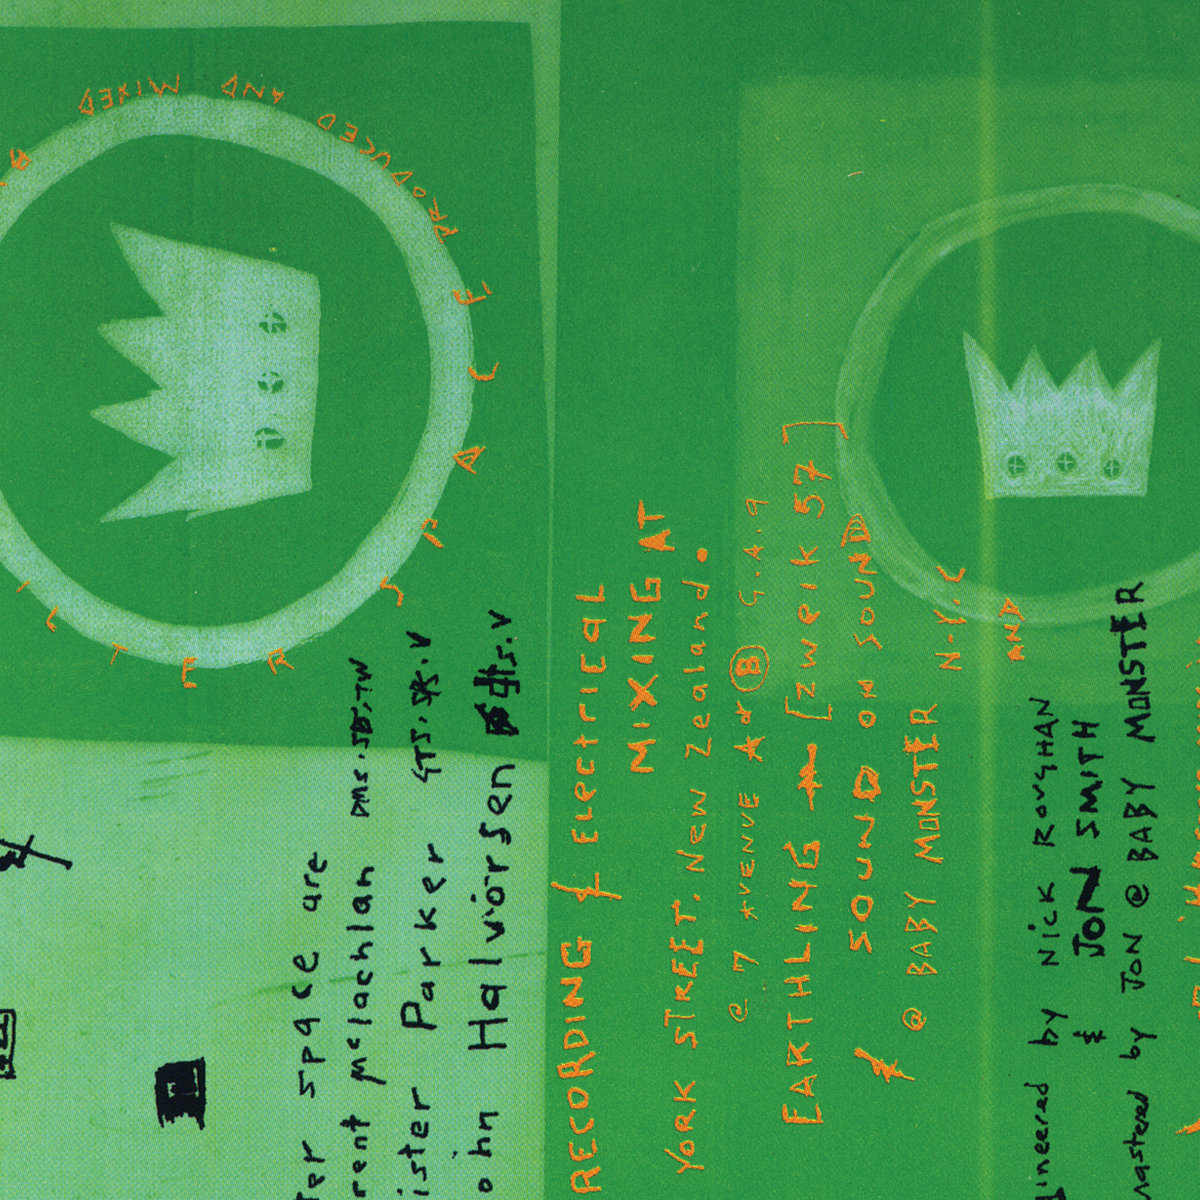 PRODUCED AND MIXED
SPACE
TER
ter space are
rent mclachlan DMS.SB;TW
ister Parker GTS.SPS.V
ohn Halvorsen gts.V
RECORDING & ELectRicaL
MIXING AT
YORK STREET. New Zealand.
@ 7 AVENUE A or B G.A.9
EARTHLING [zweik 57]
SOUND ON SOUND
& @ BABY MONSTER N.Y.C
AND
gineered by NicK ROUGHAN
& JON SMITH
mastered by JON @ BABY MONSTER